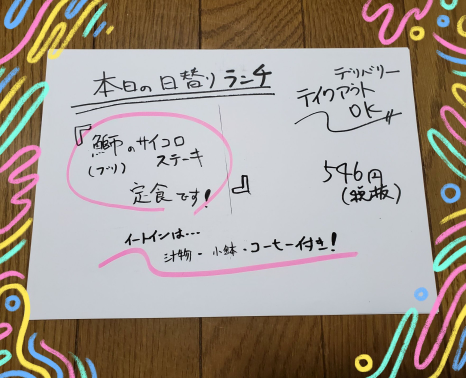 本日の日替り ランチ
デリバリー
テイクアウト
OK
『鰤のサイコロ
(ブリ) ステーキ
定食です!』
546円
(税抜)
イートインは…
汁物・小鉢・コーヒー付き!